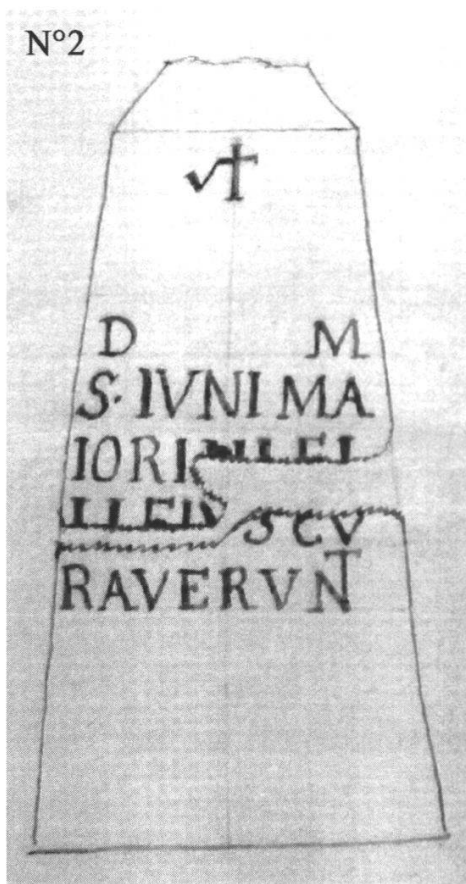 N°2
D M
S· IVNI MA
IORI
SCV
RAVERVNT